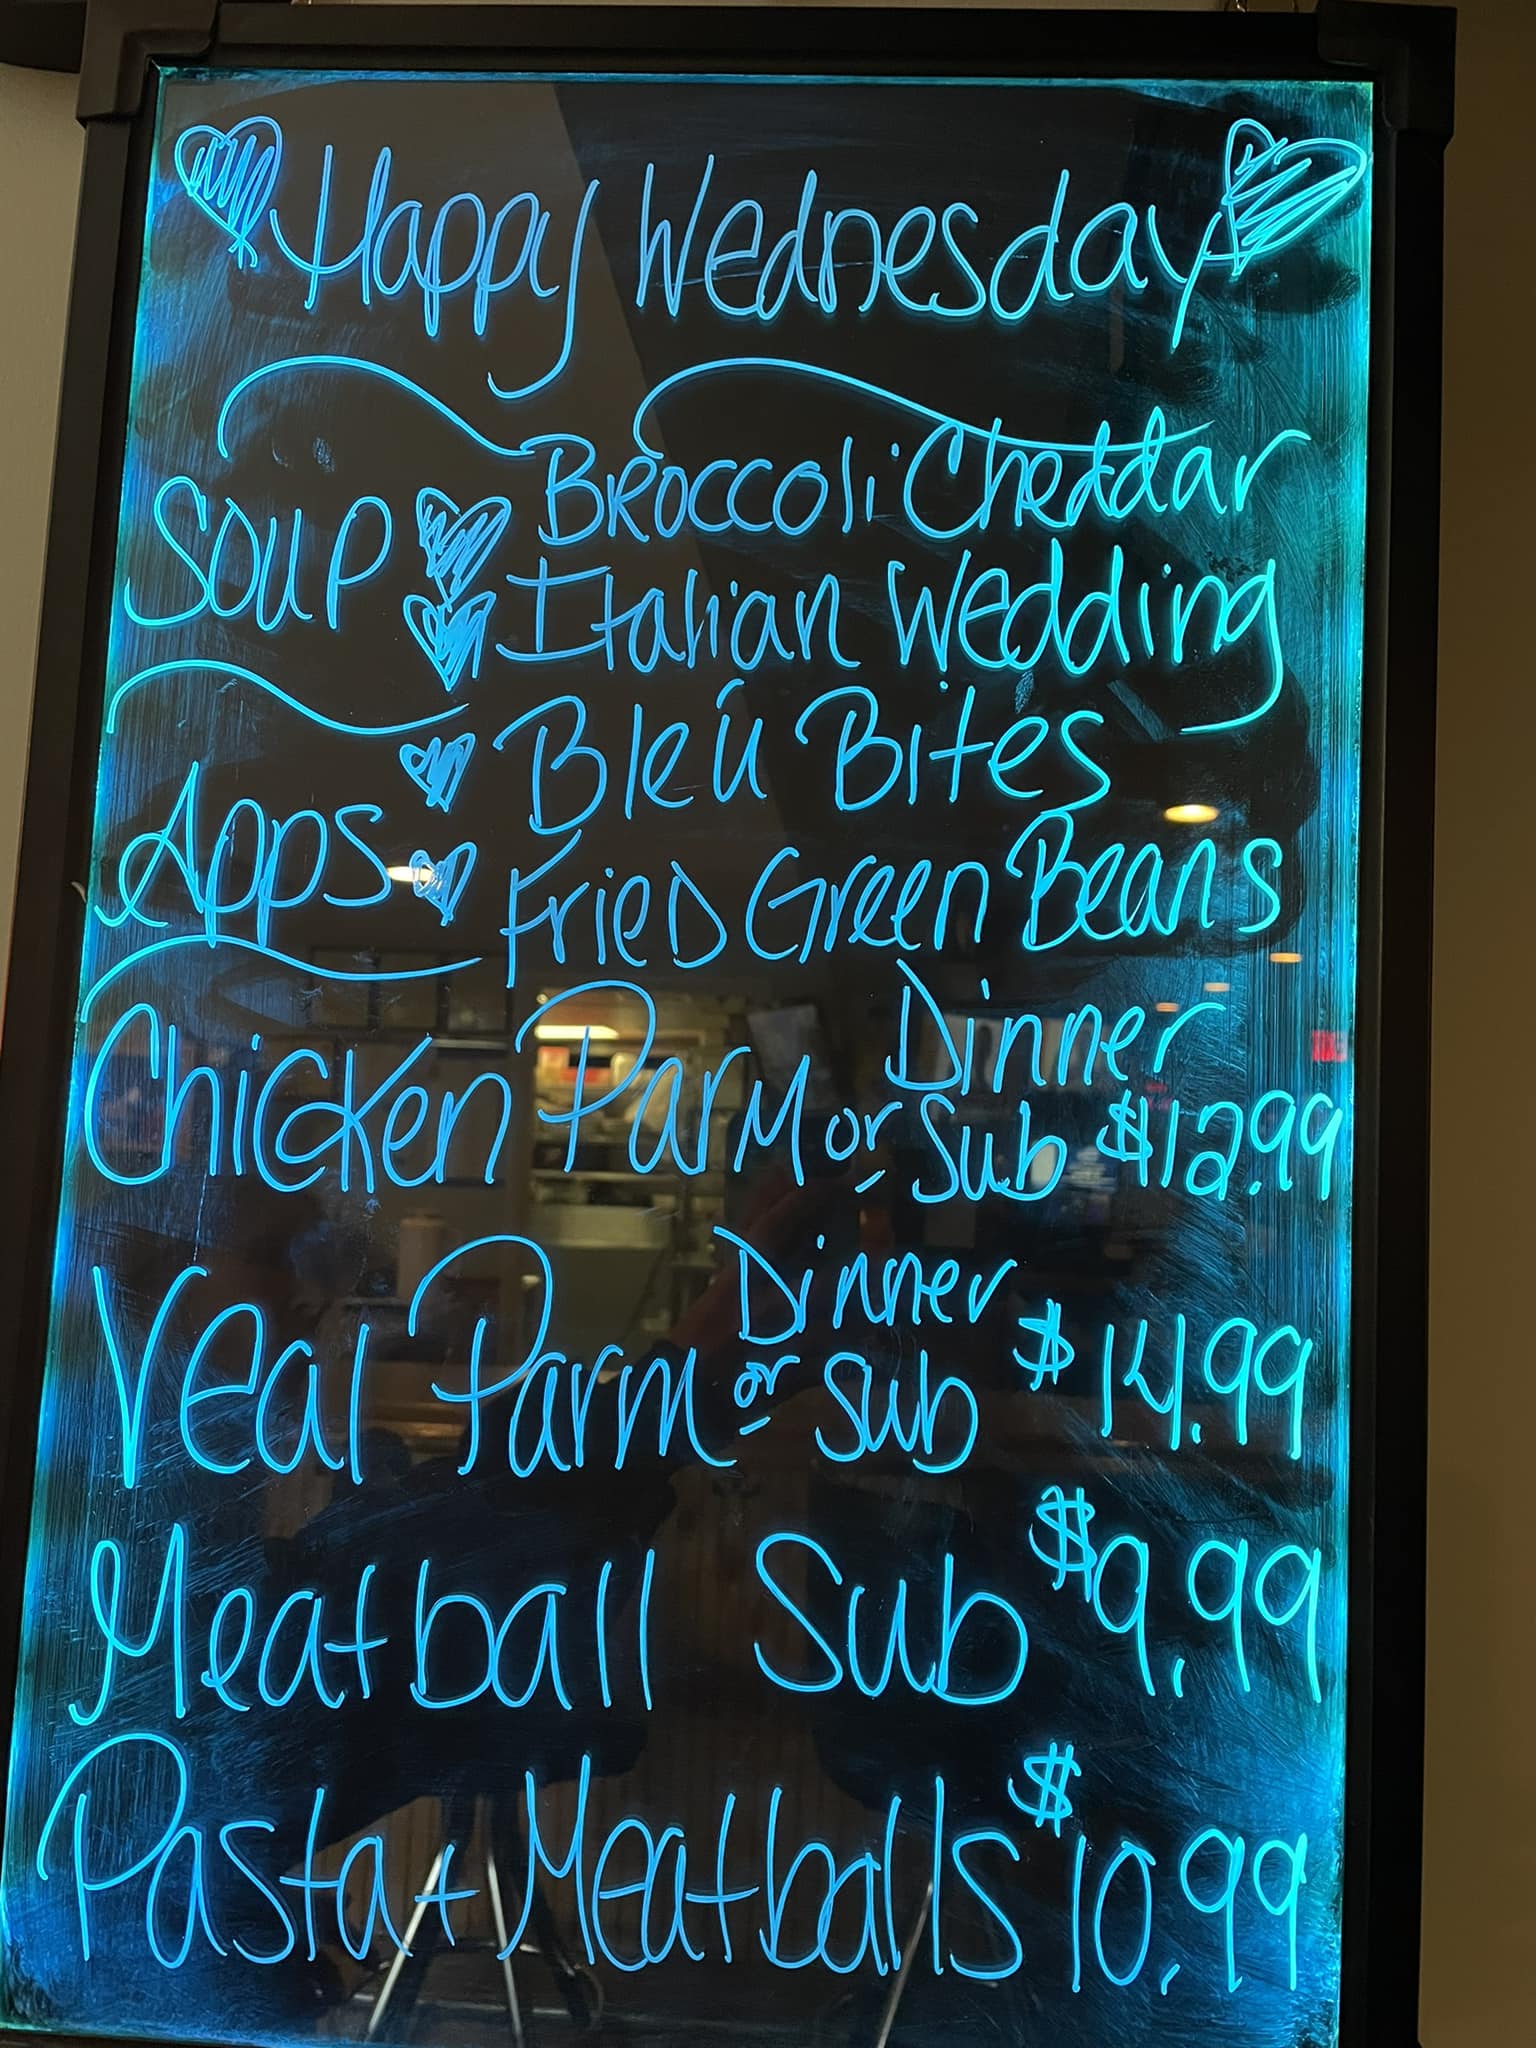 Happy Wednesday
Soup Broccoli Cheddar
Italian Wedding
Apps Bleu Bites
Fried Green Beans
Chicken Parm Dinner or Sub $12.99
Veal Parm Dinner or Sub $14.99
Meatball Sub $9.99
Pasta + Meatballs $10.99